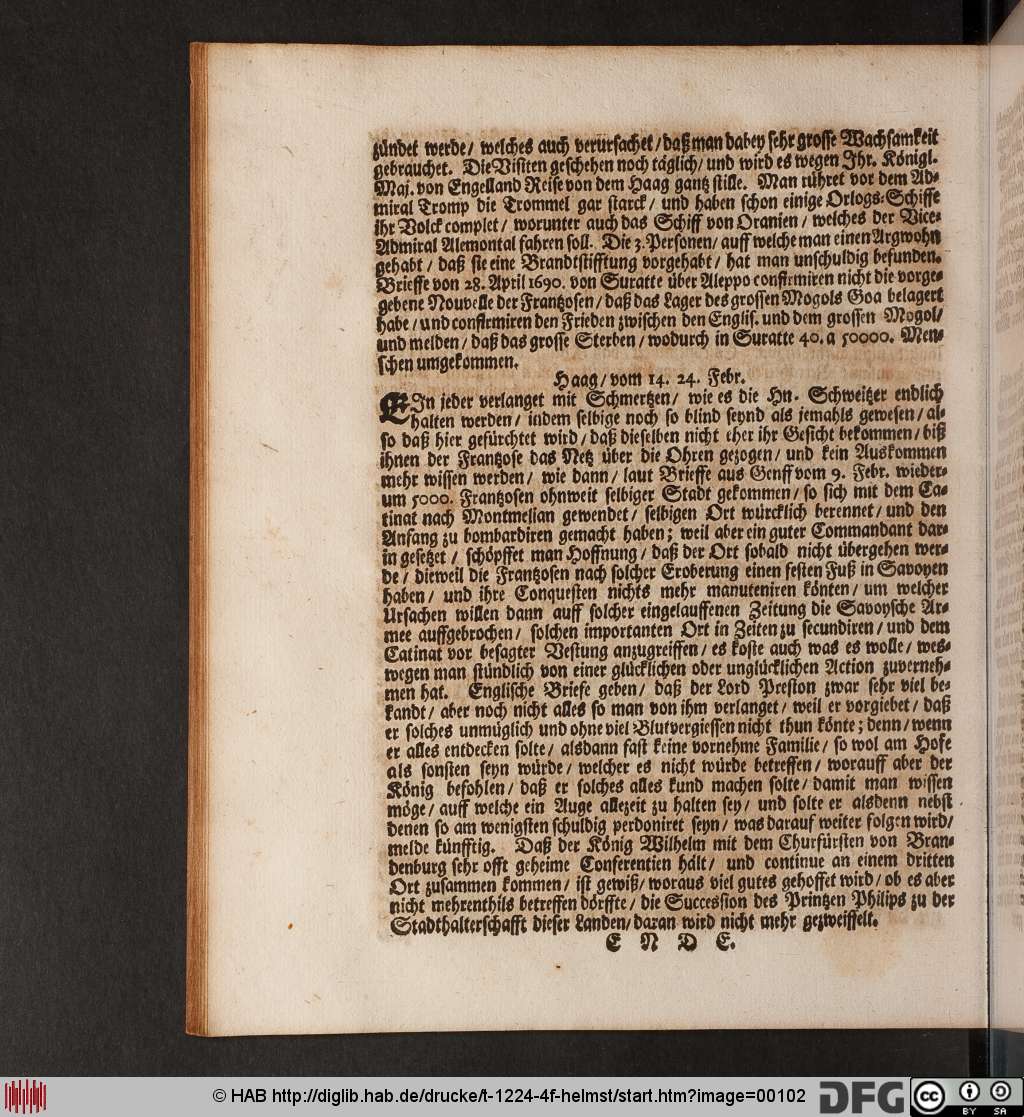 zündet werde/ welches auch verursachet/ daß man dabey sehr grosse Wachsamkeit
gebrauchet. Die Visiten geschehen noch täglich/ und wird es wegen Ihr. Königl.
Maj. von Engelland Reise von dem Haag gantz stille. Man rühret vor dem Ad-
miral Tromp die Trommel gar starck/ und haben schon einige Orlogs-Schiffe
ihr Volck complet/ worunter auch das Schiff von Oranien/ welches der Vice-
Admiral Alemontal fahren soll. Die 3. Personen/ auff welche man einen Argwohn
gehabt/ daß sie eine Brandtstifftung vorgehabt/ hat man unschuldig befunden.
Brieffe von 28. April 1690. von Suratte über Aleppo confirmiren nicht die vorge-
gebene Nouvelle der Frantzosen/ daß das Lager des grossen Mogols Goa belagert
habe/ und confirmiren den Frieden zwischen den Englis. und dem grossen Mogol/
und melden/ daß das grosse Sterben/ wodurch in Suratte 40. a 50000. Men-
schen umgekommen.
Haag/ vom 14. 24. Febr.
EIn jeder verlanget mit Schmertzen/ wie es die Hn. Schweitzer endlich
halten werden/ indem selbige noch so blind seynd als jemahls gewesen/ al-
so daß hier gefürchtet wird/ daß dieselben nicht eher ihr Gesicht bekommen/ biß
ihnen der Frantzose das Netz über die Ohren gezogen/ und kein Auskommen
mehr wissen werden/ wie dann/ laut Brieffe aus Genff vom 9. Febr. wieder-
um 5000. Frantzosen ohnweit selbiger Stadt gekommen/ so sich mit dem Ca-
tinat nach Montmelian gewendet/ selbigen Ort würcklich berennet/ und den
Anfang zu bombardiren gemacht haben; weil aber ein guter Commandant dar-
in gesetzet/ schöpffet man Hoffnung/ daß der Ort sobald nicht übergehen wer-
de/ dieweil die Frantzosen nach solcher Eroberung einen festen Fuß in Savoyen
haben/ und ihre Conquesten nichts mehr manuteniren könten/ um welcher
Ursachen willen dann auff solcher eingelauffenen Zeitung die Savoysche Ar-
mee auffgebrochen/ solchen importanten Ort in Zeiten zu secundiren/ und dem
Catinat vor besagter Vestung anzugreiffen/ es koste auch was es wolle/ wes-
wegen man stündlich von einer glücklichen oder unglücklichen Action zuverneh-
men hat. Englische Briefe geben/ daß der Lord Preston zwar sehr viel be-
kandt/ aber noch nicht alles so man von ihm verlanget/ weil er vorgiebet/ daß
er solches unmüglich und ohne viel Blutvergiessen nicht thun könte; denn/ wenn
er alles entdecken solte/ alsdann fast keine vornehme Familie/ so wol am Hofe
als sonsten seyn würde/ welcher es nicht würde betreffen/ worauff aber der
König befohlen/ daß er solches alles kund machen solte/ damit man wissen
möge/ auff welche ein Auge allezeit zu halten sey/ und solte er alsdenn nebst
denen so am wenigsten schuldig perdoniret seyn/ was darauf weiter folgen wird/
melde künfftig. Daß der König Wilhelm mit dem Churfürsten von Bran-
denburg sehr offt geheime Conferentien hält/ und continue an einem dritten
Ort zusammen kommen/ ist gewiß/ woraus viel gutes gehoffet wird/ ob es aber
nicht mehrenthils betreffen dörffte/ die Succession des Printzen Philips zu der
Stadthalterschafft dieser Landen/ daran wird nicht mehr gezweiffelt.
E N D E.
© HAB http://diglib.hab.de/drucke/t-1224-4f-helmst/start.htm?image=00102
DFG
cc BY SA